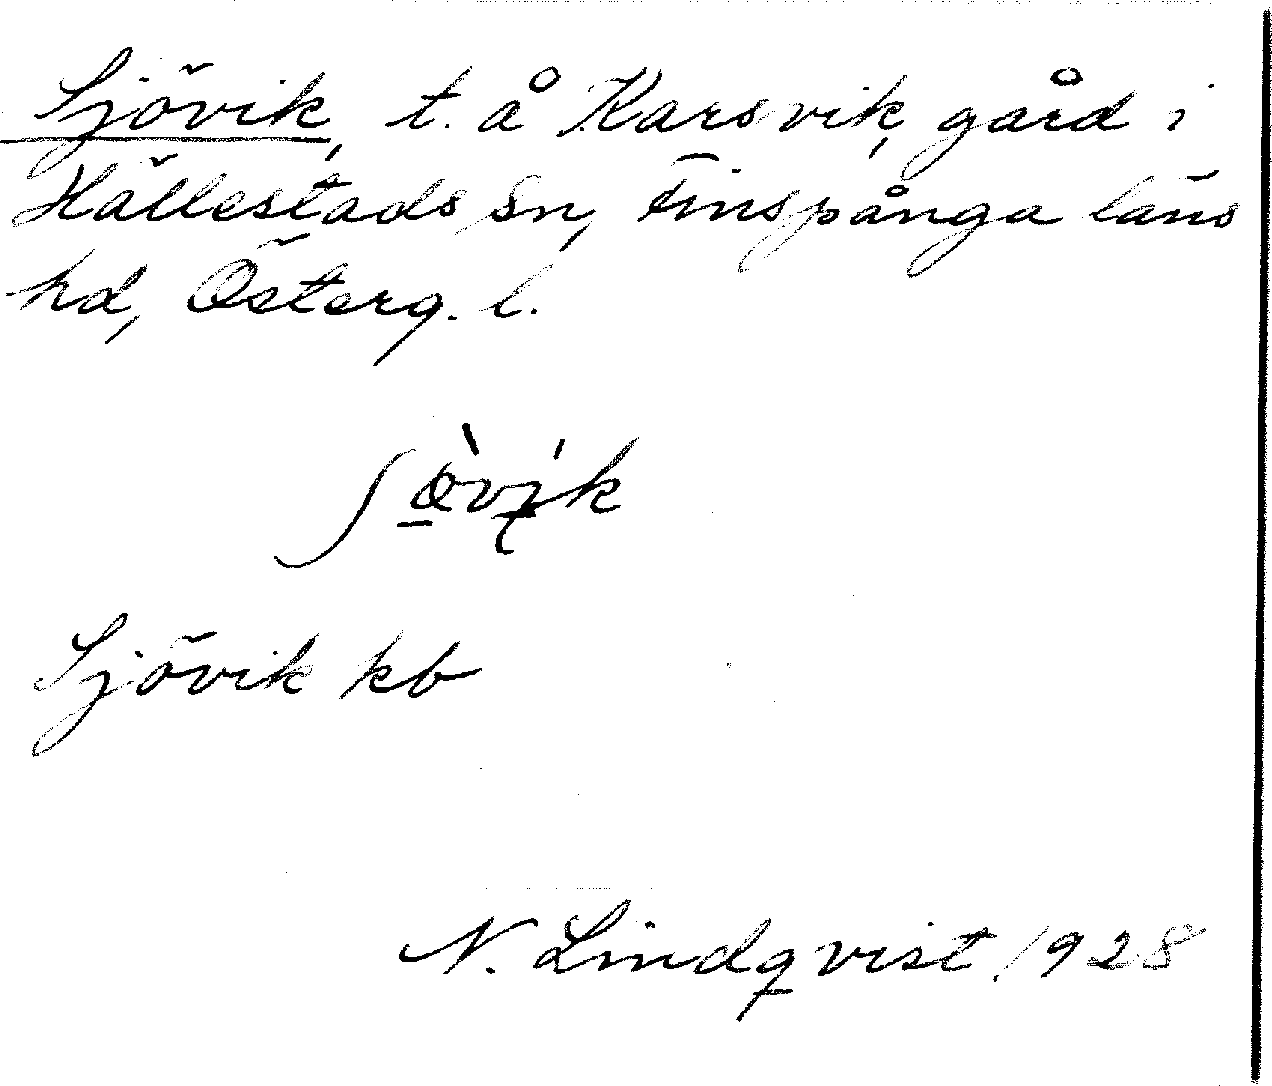 Sjövik, t. å Karsvik, gård i
Hällestads sn, Finspånga läns
hd, Österg. l.
Sjövik kb
N. Lindqvist 1928